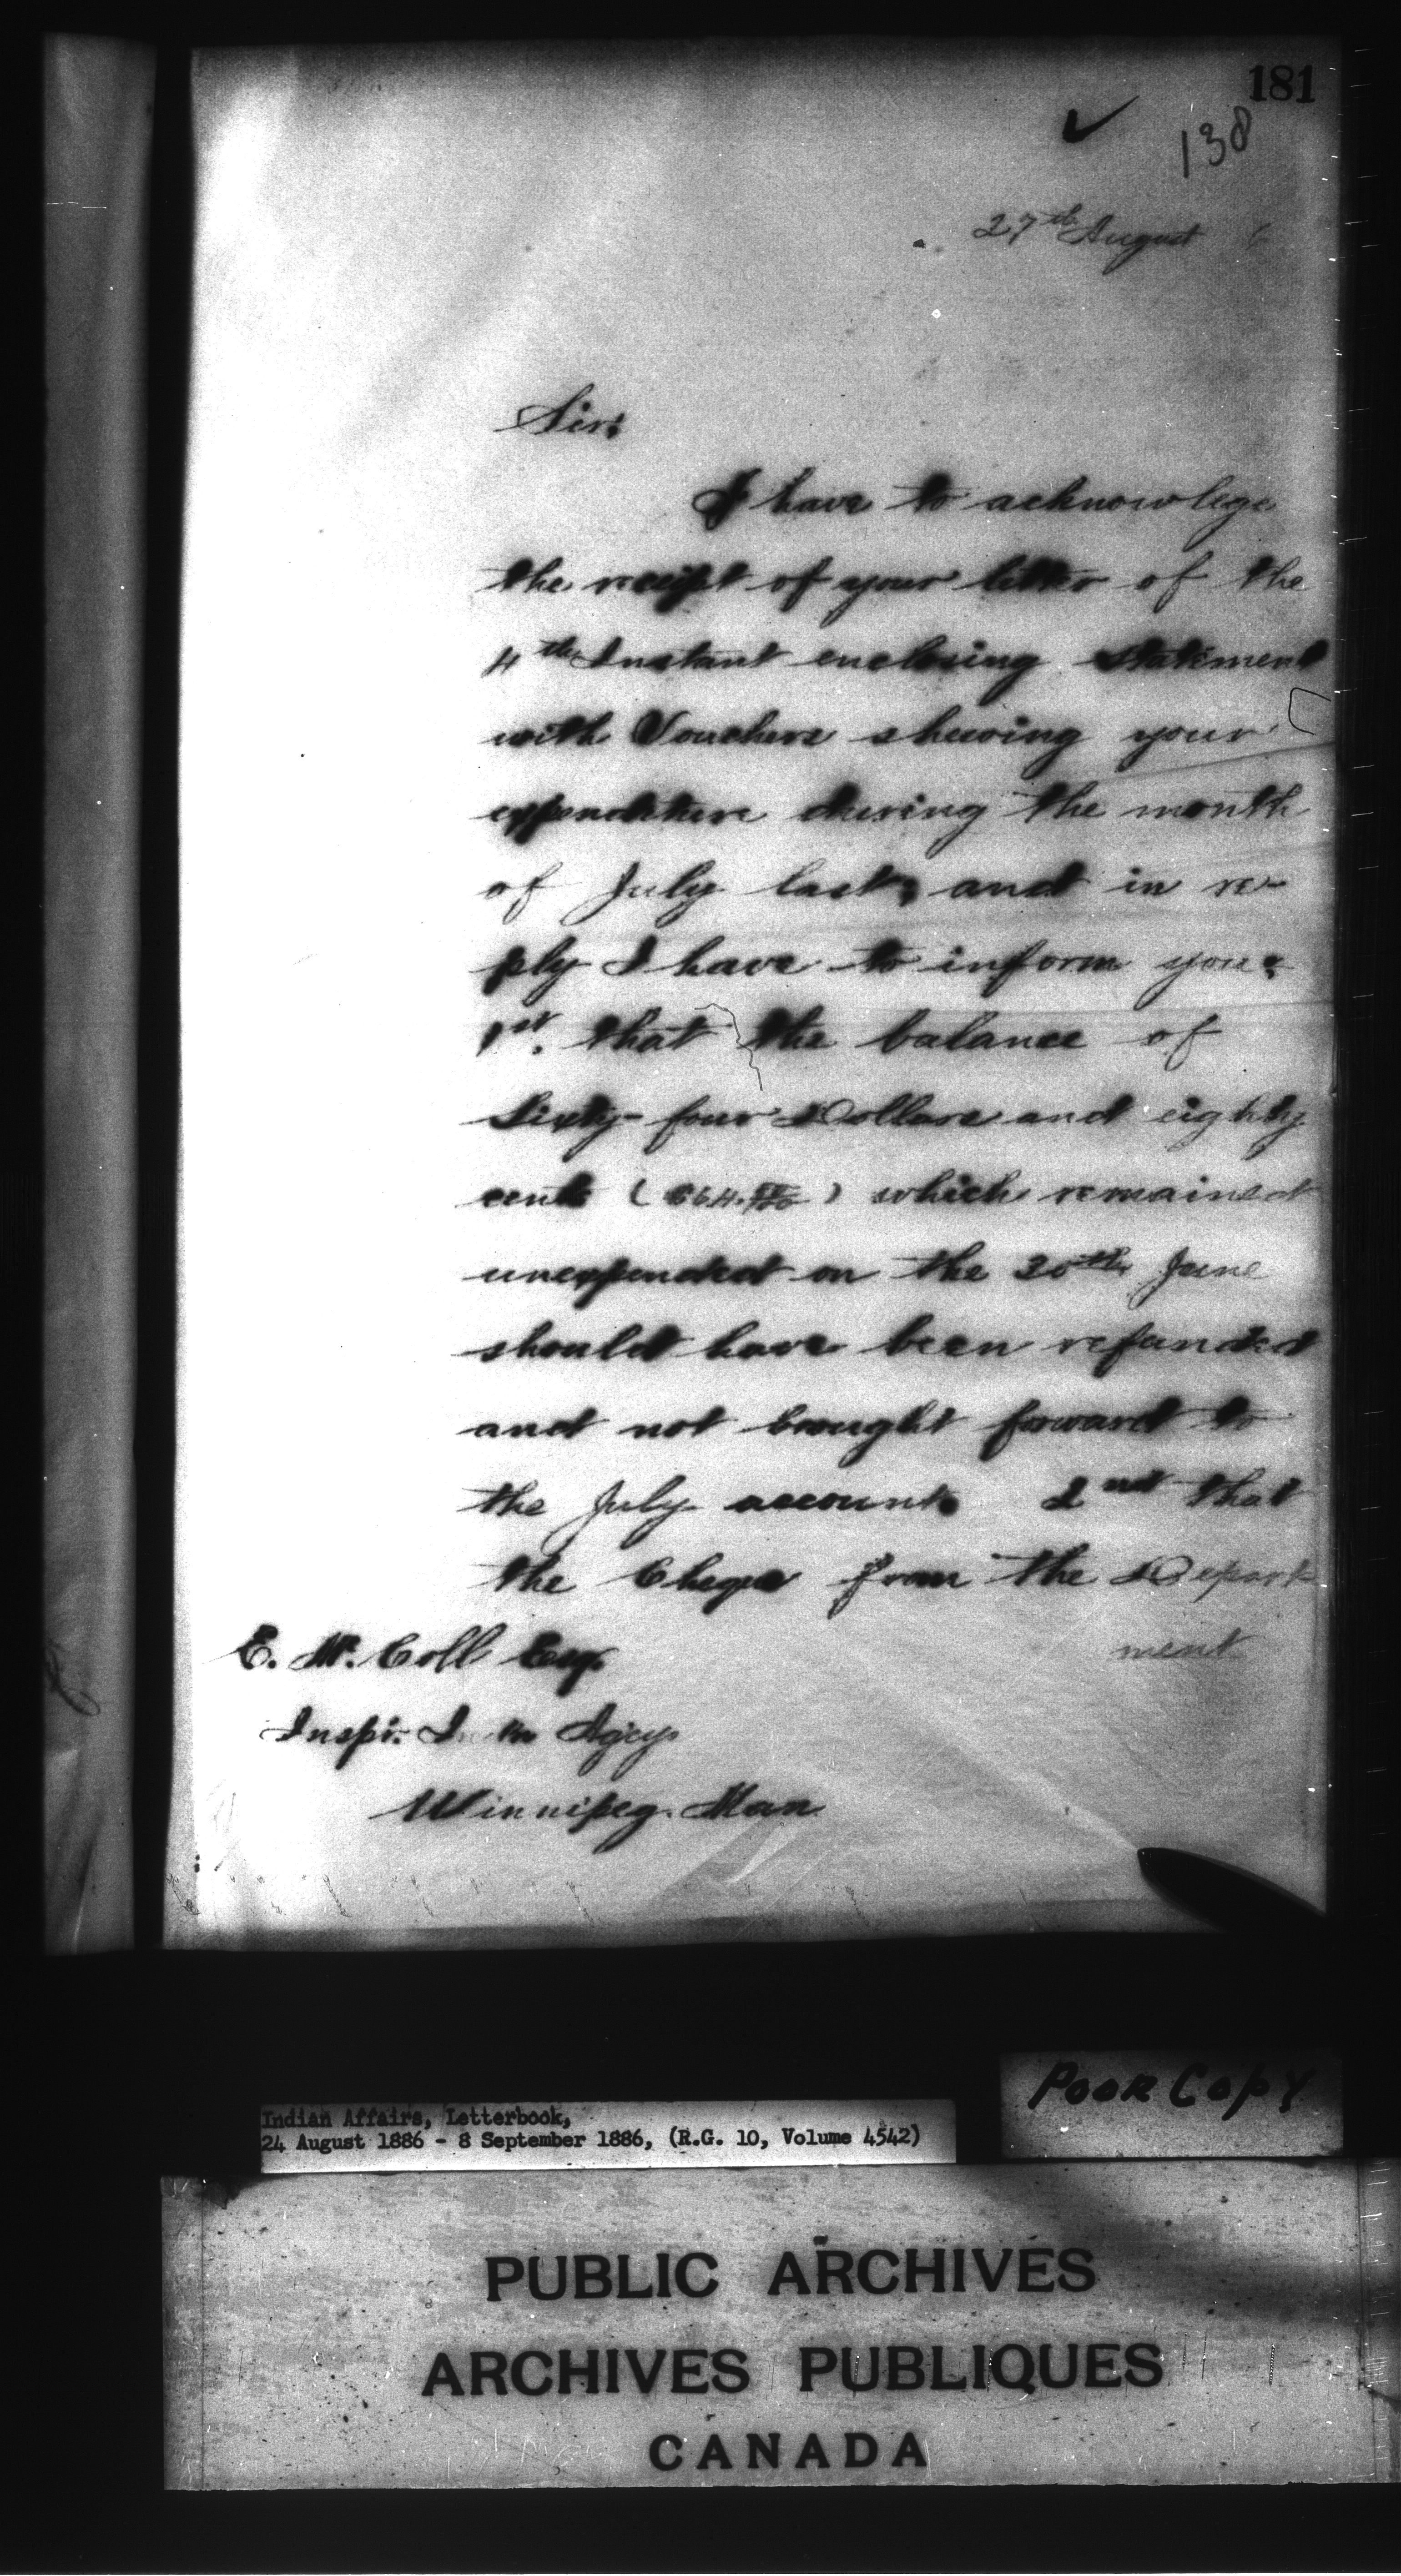 181
138
27th August 6
Sir,
I have to acknowlege
the receipt of your letter of the
4th Instant enclosing Statement
with Vouchers shewing your
expenditure during the month
of July last, and in re-
ply I have to inform you,
1st. that the balance of
Sixty-four Dollars and eighty
cents ($64.80/100) which remained
unexpended on the 30th June
should have been refunded
and not brought forward to
the July account. 2nd that
the Cheque from the Depart
ment
E. Mc. Coll Esq.
Inspr. Agcys
Winnipeg. Man
POOR COPY
Indian Affairs, Letterbook,
24 August 1886 - 8 September 1886, (R.G. 10, Volume 4542)
PUBLIC ARCHIVES
ARCHIVES PUBLIQUES
CANADA